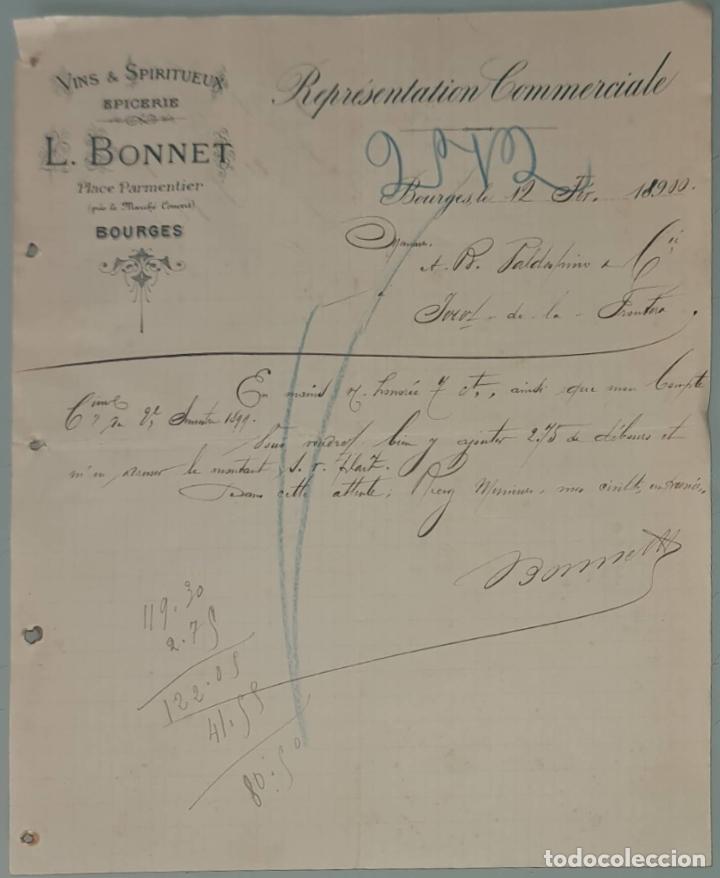 VINS & SPIRITUEUX
EPICERIE
L. BONNET
Place Parmentier
(près le Marché Couvert)
BOURGES
Représentation Commerciale
Bourges, le 12 Fév. 1900.
Messieurs
A. R. Valdespino & Cie
à
Jerez - de - la - Frontera.
En mains v. honorée 7 ct., ainsi que mon Compte
Cial du 2e Semestre 1899.
Vous voudrez bien y ajouter 2.75 de débours et
m'en le montant s. v. plait.
Dans cette attente, Recevez Messieurs, mes civilités empressées.
Bonnet
119.30
2.75
122.05
41.55
80.50
todocoleccion.net